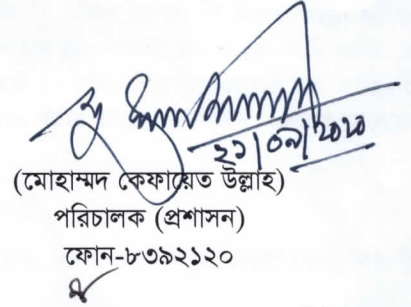 ২১/০৯/২০২০
(মোহাম্মদ কেফায়েত উল্লাহ)
পরিচালক (প্রশাসন)
ফোন-৮৩৯২১২০